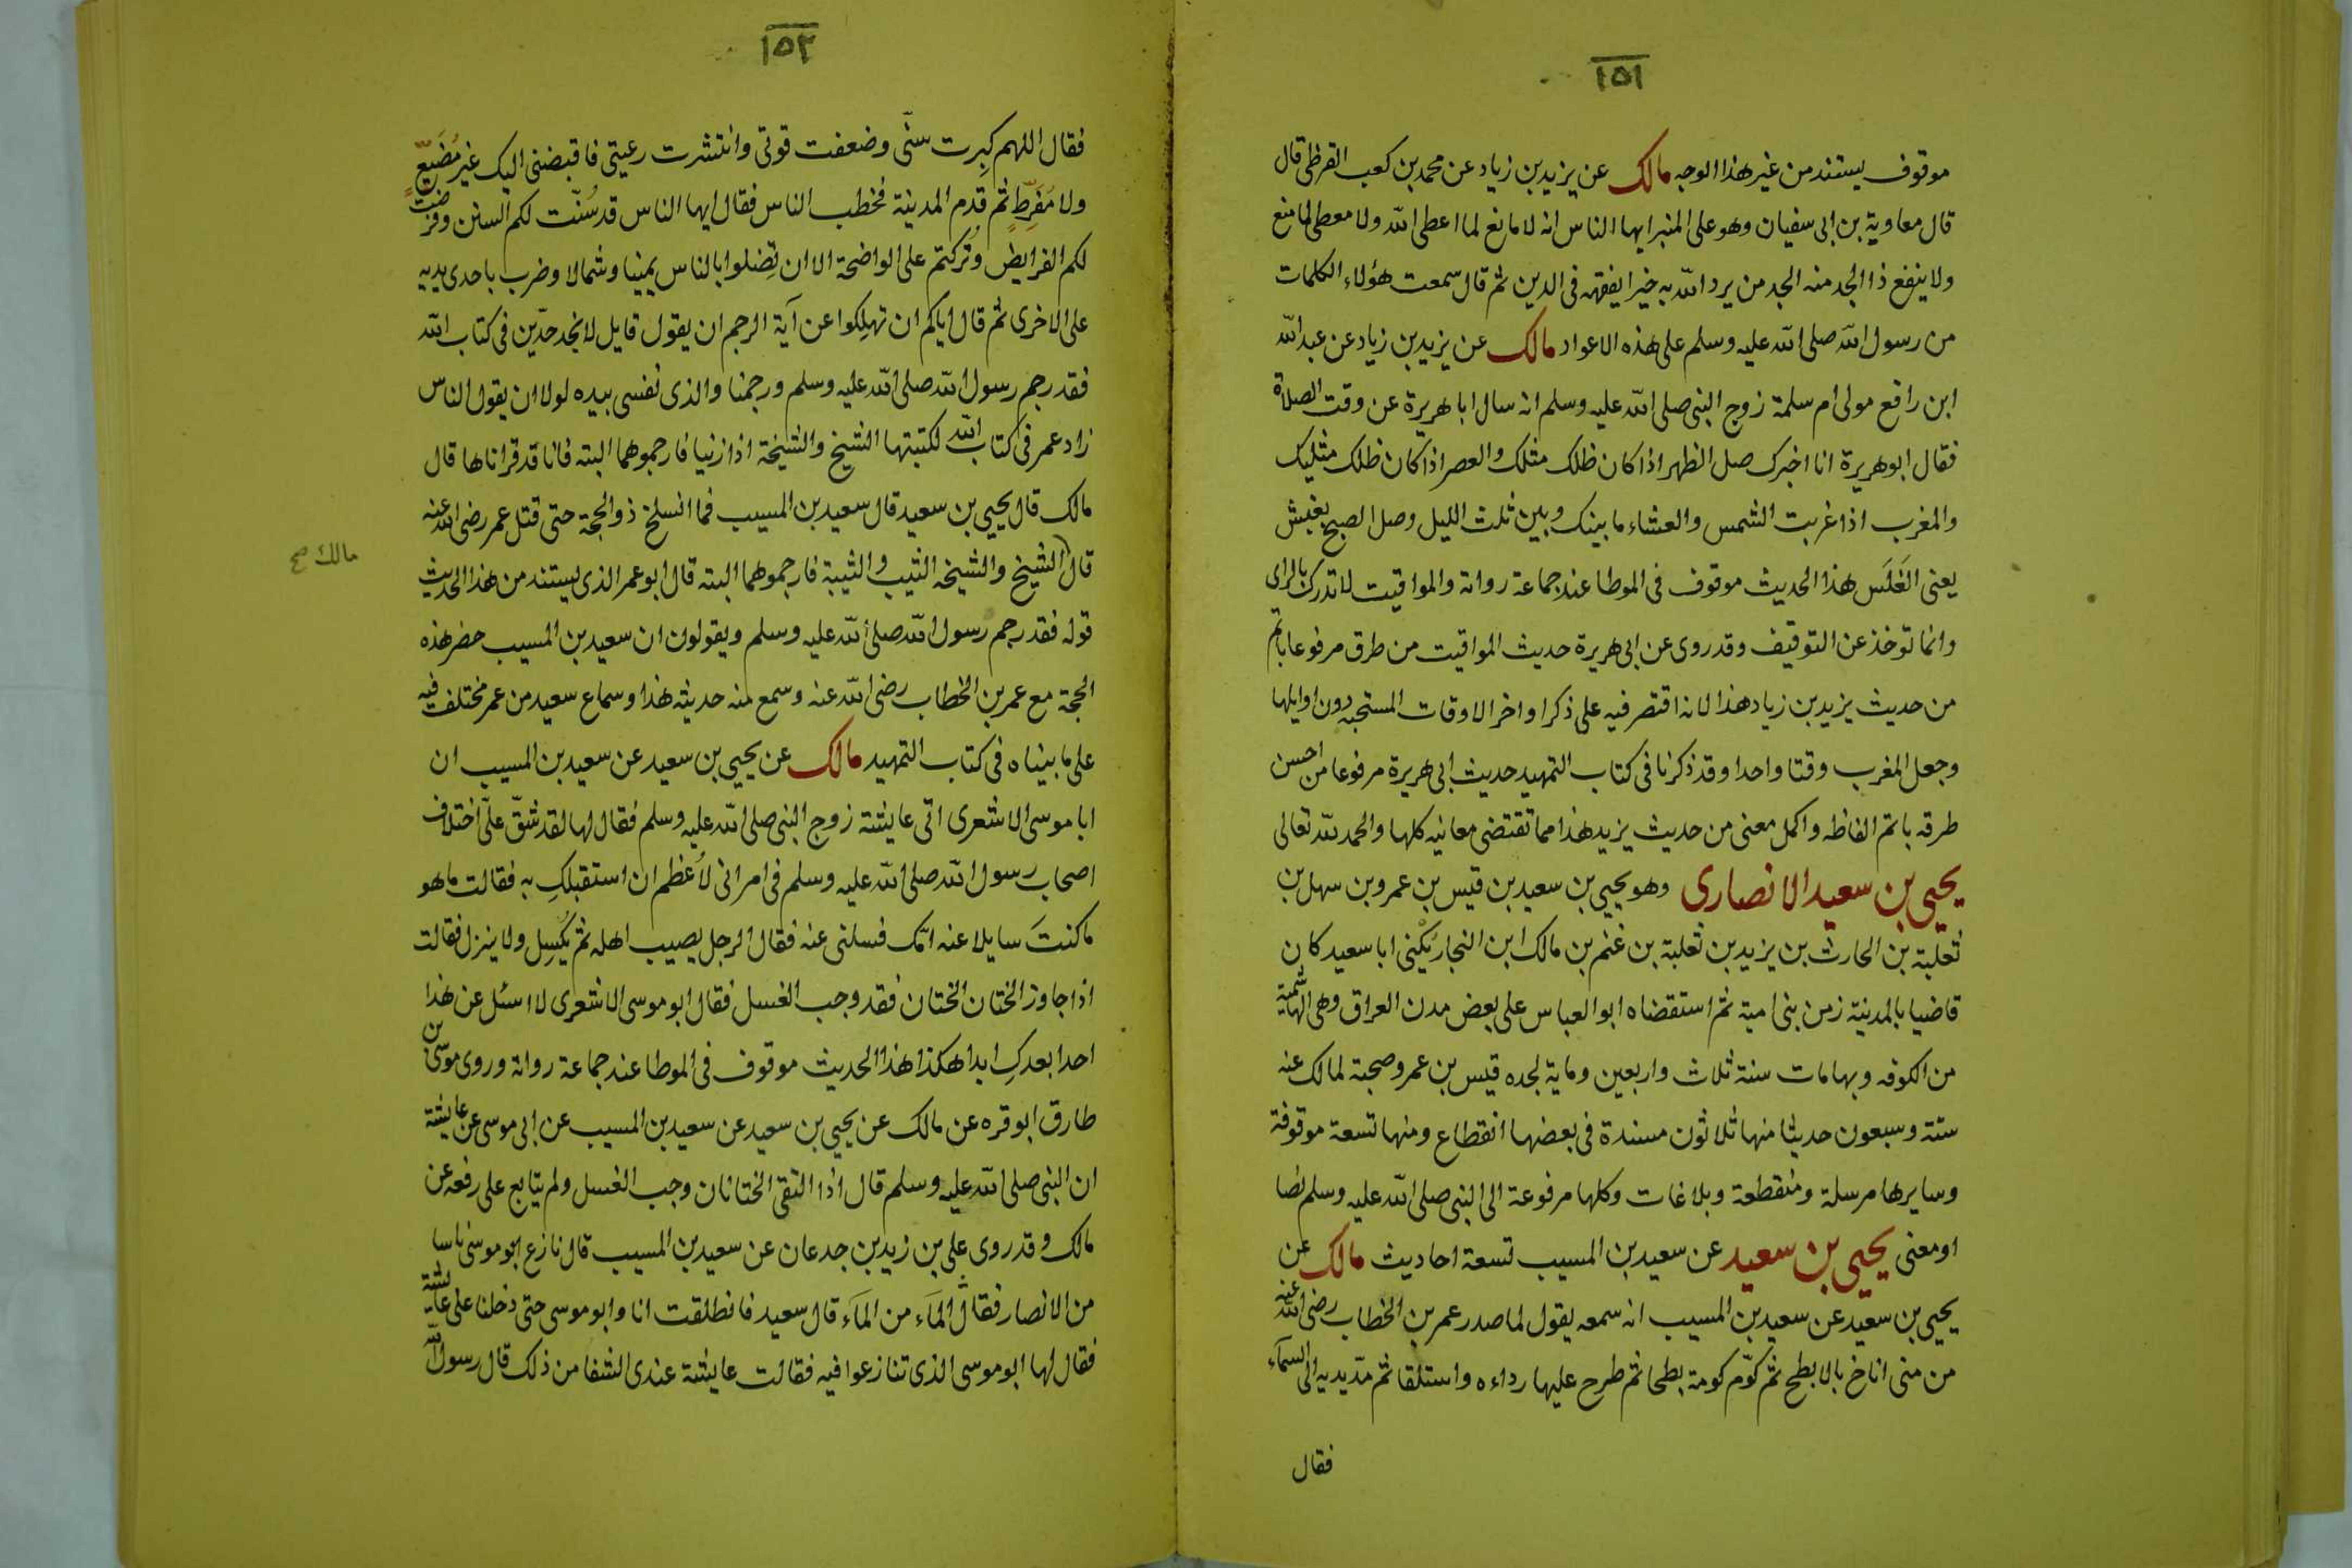 ١٥١
موقوف يستند من غير هذا الوجه مالك عن يزيد بن زياد عن محمد بن كعب القرظى قال
قال معاوية بن ابى سفيان وهو على المنبر ايها الناس انه لا مانع لما اعطى الله ولا معطى لما منع
ولا ينفع ذا الجد منه الجد من يرد الله به خيرا يفقهه فى الدين ثم قال سمعت هؤلاء الكلمات
من رسول الله صلى الله عليه وسلم على هذه الاعواد مالك عن يزيد بن زياد عن عبد الله
ابن رافع مولى ام سلمة زوج النبى صلى الله عليه وسلم انه سال ابا هريرة عن وقت الصلاة
فقال ابو هريرة انا اخبرك صل الظهر اذا كان ظلك مثلك والعصر اذا كان ظلك مثليك
والمغرب اذا غربت الشمس والعشاء ما بينك وبين ثلث الليل وصل الصبح بغبش
يعنى الغَلَس هذا الحديث موقوف فى الموطا عند جماعة رواته والمواقيت لا تدرك بالراى
وانما توخذ عن التوقيف وقد روى عن ابى هريرة حديث المواقيت من طرق مرفوعا باتم
من حديث يزيد بن زياد هذا لانه اقتصر فيه على ذكر اواخر الاوقات المستحبه دون اوايلها
وجعل المغرب وقتا واحدا وقد ذكرنا فى كتاب التمهيد حديث ابى هريرة مرفوعا من احسن
طرقه باتم الفاظه واكمل معنى من حديث يزيد هذا مما تقتضى معانيه كلها والحمد لله تعالى
يحيى بن سعيد الانصارى وهو يحيى بن سعيد بن قيس بن عمرو بن سهل بن
ثعلبة بن الحارث بن يزيد بن ثعلبة بن غنم بن مالك ابن النجار يُكْنى ابا سعيد كان
قاضيا بالمدينة زمن بنى امية ثم استقضاه ابو العباس على بعض مدن العراق وهى الهاشمية
من الكوفه وبها مات سنة ثلاث واربعين وماية لجده قيس بن عمرو صحبة لمالك عنه
ستة وسبعون حديثا منها ثلاثون مسندة فى بعضها انقطاع ومنها تسعة موقوفة
وسايرها مرسلة ومنقطعة وبلاغات وكلها مرفوعة الى النبى صلى الله عليه وسلم نصا
او معنى يحيى بن سعيد عن سعيد بن المسيب تسعة احاديث مالك عن
يحيى بن سعيد عن سعيد بن المسيب انه سمعه يقول لما صدر عمر بن الخطاب رضى الله عنه
من منى اناخ بالابطح ثم كوّم كومة بطحا ثم طرح عليها رداءه واستلقا ثم مدّ يديه الى السمآء
فقال
١٥٢
فقال اللهم كبِرت سنّى وضعفت قوتى وانتشرت رعيتى فاقبضنى اليك غير مُضَيّعٍ
ولا مُفَرِّطٍ ثم قدم المدينة فخطب الناس فقال ايها الناس قد سُنّت لكم السنن وفرضت
لكم الفرايض وتُركتم على الواضحة الا ان تضلوا بالناس يمينا وشمالا وضرب باحدى يديه
على الاخرى ثم قال اياكم ان تهلِكوا عن آية الرجم ان يقول قايل لا نجد حدّين فى كتاب الله
فقد رجم رسول الله صلى الله عليه وسلم ورجمنا والذى نفسى بيده لولا ان يقول الناس
زاد عمر فى كتاب الله لكتبتها الشيخ والشيخة اذا زنيا فارجموهما البته فانا قد قراناها قال
مالك قال يحيى بن سعيد قال سعيد بن المسيب فما انسلخ ذو الحجة حتى قتل عمر رضى الله عنه
قال الشيخ والشيخه الثيب والثيبة فارجموهما البته قال ابو عمر الذى يستند من هذا الحديث
مالك صح
قوله فقد رجم رسول الله صلى الله عليه وسلم ويقولون ان سعيد بن المسيب حضر هذه
الحجة مع عمر بن الخطاب رضى الله عنه وسمع منه حديثه هذا وسماع سعيد من عمر مختلف فيه
على ما بيناه فى كتاب التمهيد مالك عن يحيى بن سعيد عن سعيد بن المسيب ان
ابا موسى الاشعرى اتى عايشة زوج النبى صلى الله عليه وسلم فقال لها لقد شقّ علىّ اختلاف
اصحاب رسول الله صلى الله عليه وسلم فى امر انى لأعظم ان استقبلكِ به فقالت ما هو
ما كنتَ سايلا عنه امّك فسلنى عنه فقال الرجل يصيب اهله ثم يُكسِل ولا ينزل فقالت
اذا جاوز الختان الختان فقد وجب الغسل فقال ابو موسى الاشعرى لا اسئل عن هذا
احدا بعدكِ ابدا هكذا هذا الحديث موقوف فى الموطا عند جماعة رواته وروى موسى بن
طارق ابو قره عن مالك عن يحيى بن سعيد عن سعيد بن المسيب عن ابى موسى عن عايشة
ان النبى صلى الله عليه وسلم قال اذا التقى الختانان وجب الغسل ولم يتابع على رفعه عن
مالك وقد روى على بن زيد بن جدعان عن سعيد بن المسيب قال نازع ابو موسى ناسا
من الانصار فقال المآء من المآء قال سعيد فانطلقت انا وابو موسى حتى دخلنا على عايشة
فقال لها ابو موسى الذى تنازعوا فيه فقالت عايشة عندى الشفا من ذلك قال رسول الله